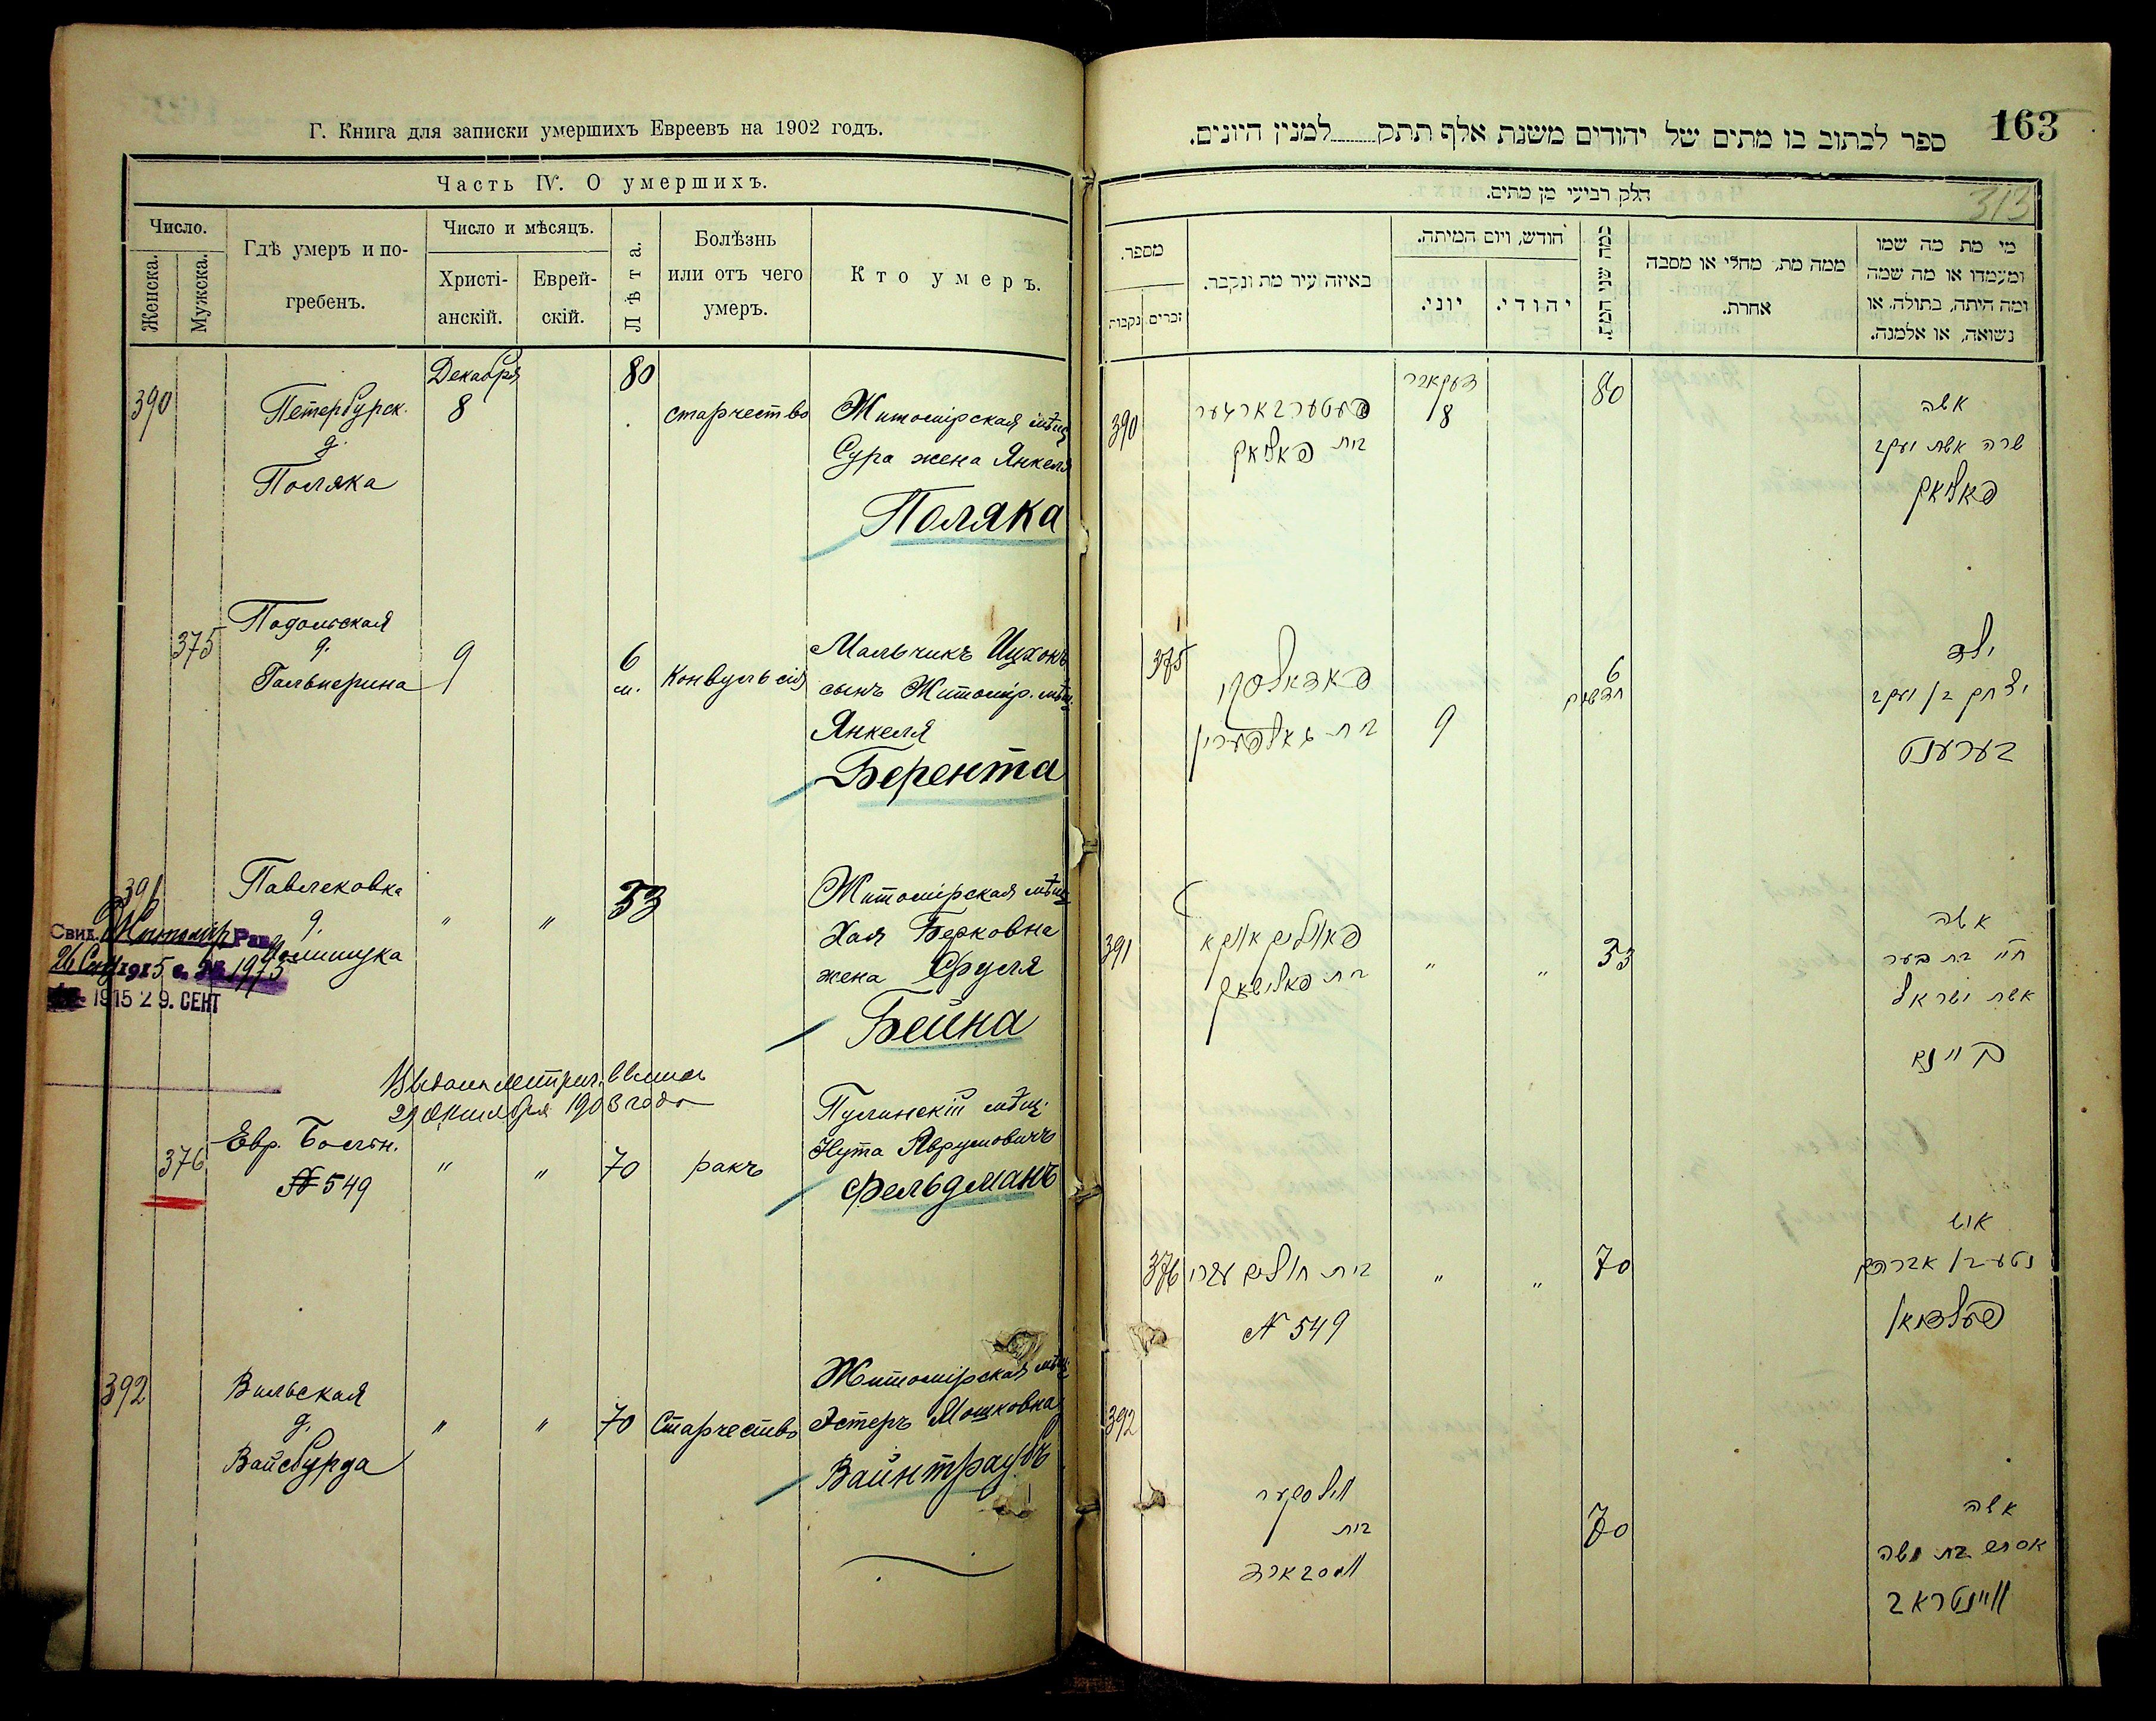 Г. Книга для записки умершихъ Евреевъ на 1902 годъ.
Часть IV. О умершихъ.
Число.
Женска.
Мужска.
Гдѣ умеръ и по-
гребенъ.
Число и мѣсяцъ.
Христі-
анскій.
Еврей-
скій.
Лѣта.
Болѣзнь
или отъ чего
умеръ.
Кто умеръ.
390
Петербурск.
д.
Поляка
Декабря
8
80
старчество
Житомірская мѣщ
Сура жена Янкеля
Поляка
375
Подольская
д.
Гальперина
9
6
м.
Конвульсія
Мальчикъ Ицхокъ
сынъ Житомір. мѣщ.
Янкеля
Берента
391
Павлековка
д.
"
"
33
Житомірская мѣщ
Хая Берковна
жена Сруля
Бейна
Свид. Житомір Рав.
26 Сен 1915 г. № 1975
1915 29. СЕНТ
29 Октября 1908 года
376
Евр. Болѣн.
№ 549
"
"
70
ракъ
Пулинскій мѣщ.
Нута Аврумовичъ
Фельдманъ
392
Вильская
д.
Вайсбурда
"
"
70
Старчество
Житомірская мѣщ.
Эстеръ Мошковна
Вайнтраубъ
163
ספר לכתוב בו מתים של יהודים משנת אלף תתק למנין היונים.
313
חלק רביעי מן מתים.
מספר.
נקבות
זכרים
באיזה עיר מת ונקבר.
חודש, ויום המיתה.
יוני.
יהודי.
כמה שני המת.
ממה מת, מחלי או מסבה
אחרת.
מי מת מה שמו
ומעמדו או מה שמה
ומה היתה, בתולה, או
נשואה, או אלמנה.
390
פעטערבארצער
בית פאליאק
דעקאבר
8
80
אשה
שרה אשת יעקב
פאליאק
375
פאדאלסקי
בית גאלפערין
9
6
חדשים
ילד
יצחק בן יעקב
בערענט
391
"
"
33
אשה
חיי בת בער
אשת ישראל
ביינא
376
בית חולים עברי
N 549
"
"
70
איש
נטע בן אברהם
פעלדמאן
392
ווילסקער
בית
ווייסבארד
70
אשה
אסתר בת משה
וויינטראב